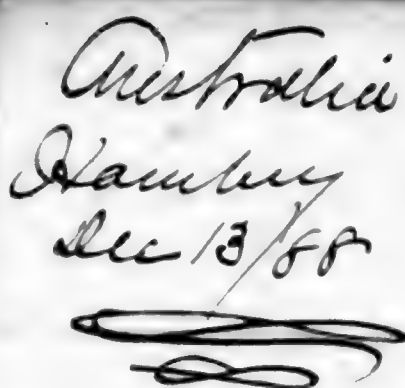 Australia
Hamburg
Dec 13/88